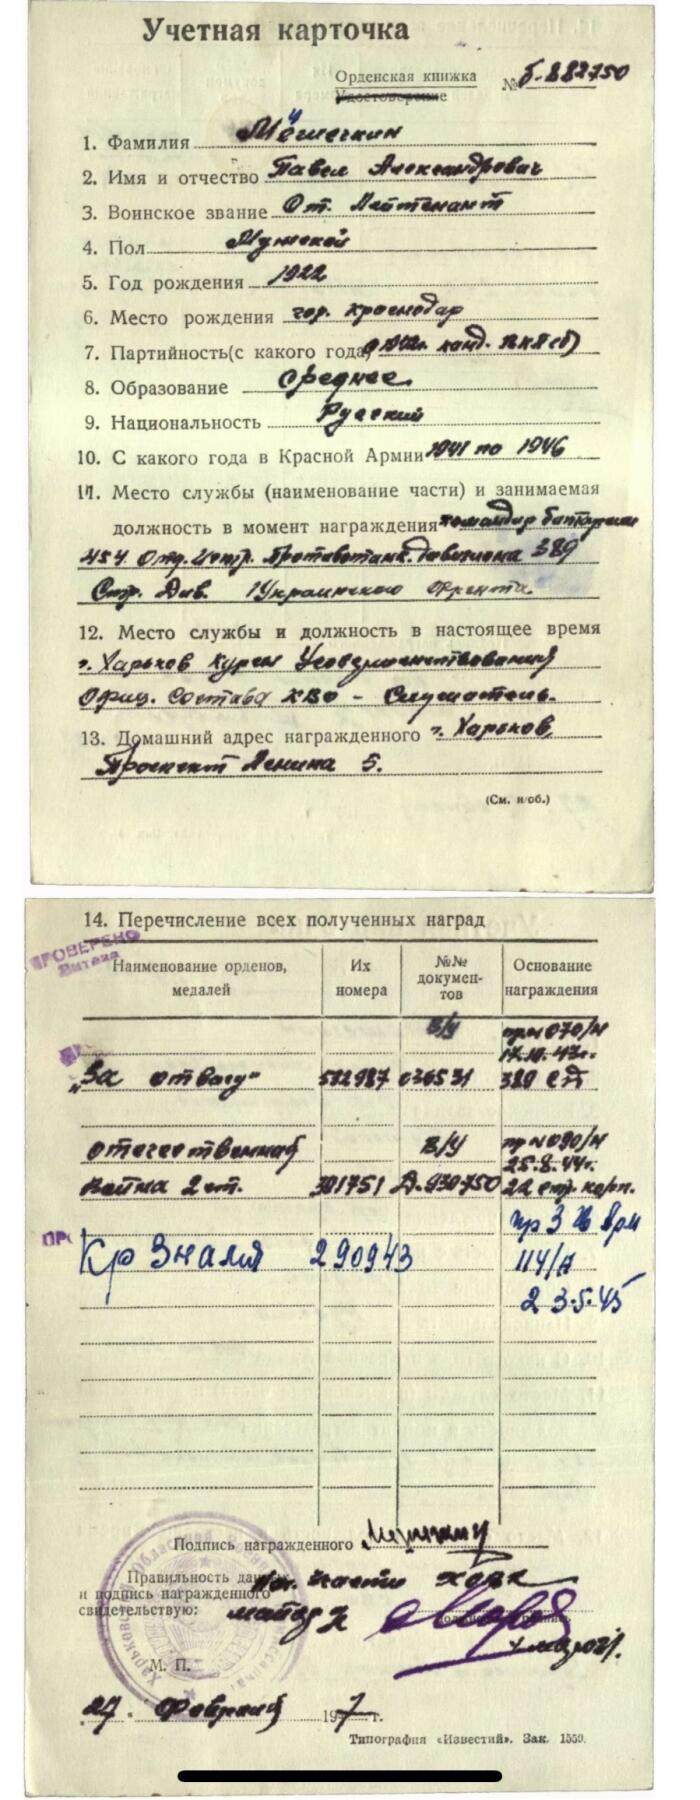 Учетная карточка
Орденская книжка
Удостоверение
№ Б-882750
1. Фамилия Мешечкин
2. Имя и отчество Павел Александрович
3. Воинское звание Ст. Лейтенант
4. Пол Мужской
5. Год рождения 1922
6. Место рождения гор. Краснодар
7. Партийность (с какого года) канд. ВКП(б)
8. Образование Среднее
9. Национальность Русский
10. С какого года в Красной Армии 1941 по 1946
11. Место службы (наименование части) и занимаемая
должность в момент награждения командир батареи
454 Отд. Противотанк. Дивизиона 389
Стр. Див. 1 Украинского Фронта
12. Место службы и должность в настоящее время
г. Харьков Курсы Усовершенствования
Офиц. Состава ХВО - Слушатель.
13. Домашний адрес награжденного г. Харьков,
Проспект Ленина 5.
(См. н/об.)
14. Перечисление всех полученных наград
ПРОВЕРЕНО
Наименование орденов, медалей
Их номера
№№ документов
Основание награждения
В/У пр. № 070/н
17.10.43г.
„За отвагу" 582987 036531 389 СД
Отечественная В/У пр. № 090/н
25.8.44г.
война 2 ст. 301751 Д.930750 22 стр. корп.
пр 3 Гв Арм
Кр Знамя 290943 114/н
23.5.45
Подпись награжденного
Правильность данных
и подпись награжденного
свидетельствую:
Нач. части
майор
М. П.
27 Февраля 1947 г.
Типография «Известий». Зак. 1559.